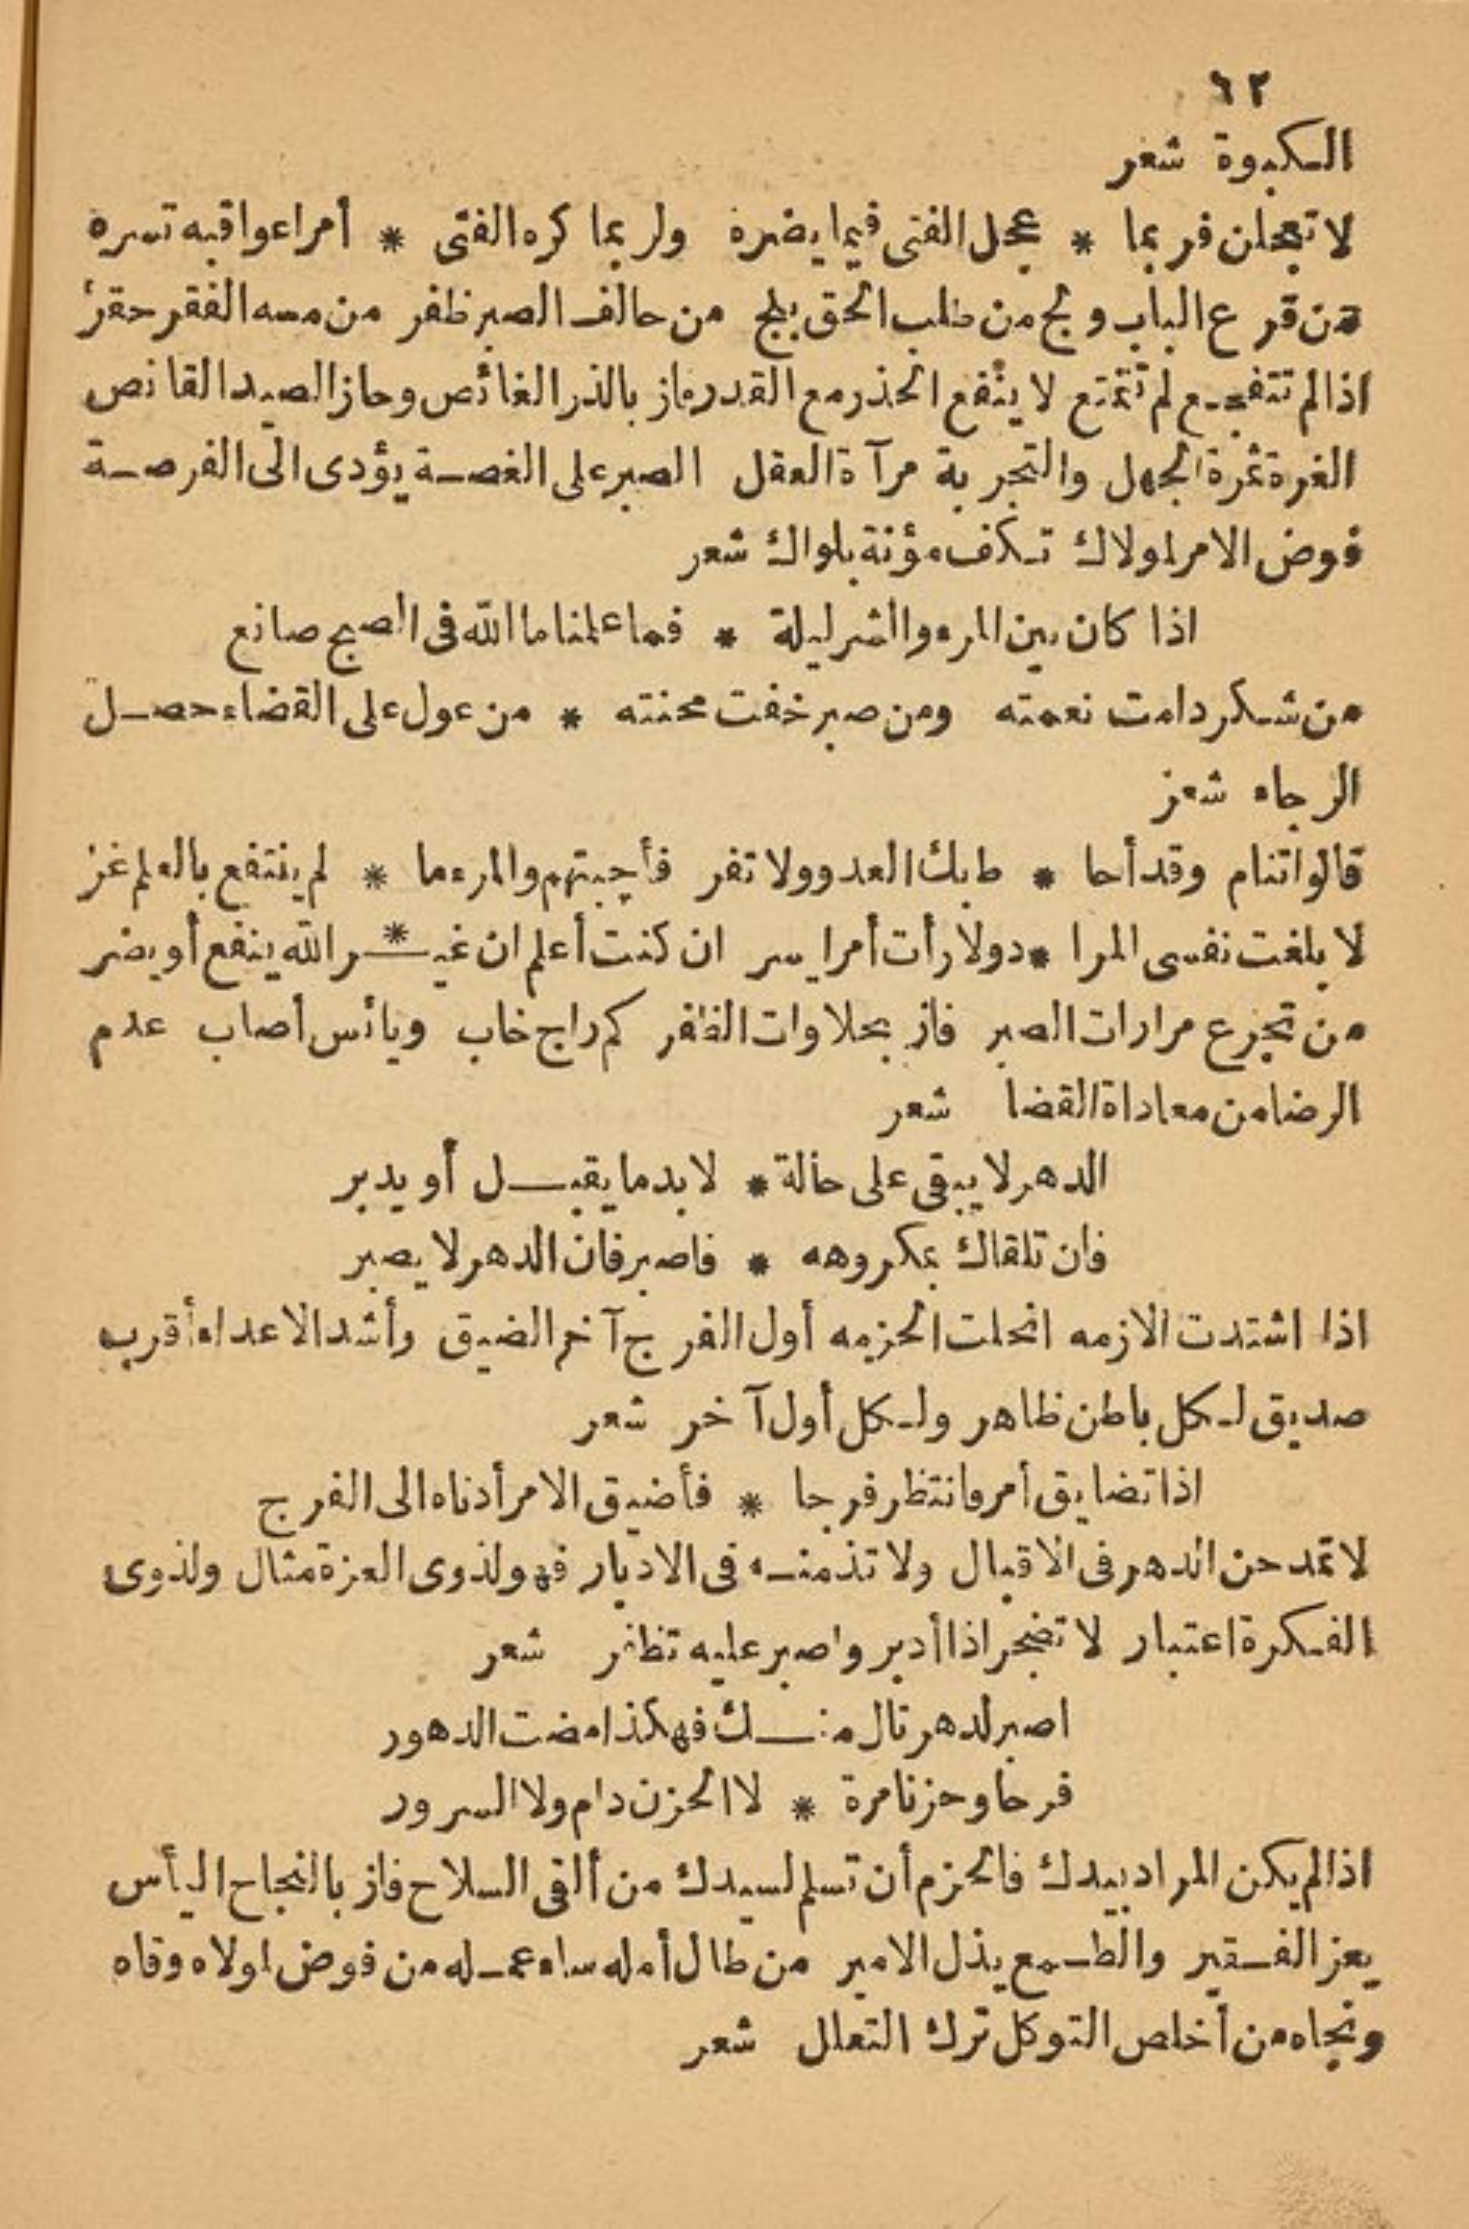 ٦٢
الكبوة شعر
لا تعجلن فربما * عجل الفتى فيما يضره ولربما كره الفتى * أمرا عواقبه تسره
من قرع الباب ولج من طلب الحق بلج من حالف الصبر ظفر من مسه الفقر حقر
اذا لم تتفجع لم تتمتع لا ينفع الحذر مع القدر فاز بالدر الغائص وحاز الصيد القانص
الغرة ثمرة الجهل والتجربة مرآة العقل الصبر على الغصة يؤدى الى الفرصة
فوض الامر لمولاك تكف مؤنة بلواك شعر
اذا كان بين المرء والشر ليلة * فما علمنا ما الله فى الصبح صانع
من شكر دامت نعمته ومن صبر خفت محنته * من عول على القضاء حصل
الرجاء شعر
قالوا تنام وقد أحا * ط بك العدو ولا تفر فأجبتهم والمرء ما * لم ينتفع بالعلم غر
لا بلغت نفسى المرا * د ولا رأت أمرا يسر ان كنت أعلم ان غيـ * ـر الله ينفع أو يضر
من تجرع مرارات الصبر فاز بحلاوات الظفر كم راج خاب ويائس أصاب عدم
الرضا من معاداة القضا شعر
الدهر لا يبقى على حالة * لا بد ما يقبل أو يدبر
فان تلقاك بمكروهه * فاصبر فان الدهر لا يصبر
اذا اشتدت الازمه انحلت الحزمه أول الفرج آخر الضيق وأشد الاعداء أقرب
صديق لكل باطن ظاهر ولكل أول آخر شعر
اذا تضايق أمر فانتظر فرجا * فأضيق الامر أدناه الى الفرج
لا تمدحن الدهر فى الاقبال ولا تذمنه فى الادبار فهو لذوى العزة مثال ولذوى
الفكرة اعتبار لا تضجر اذا أدبر واصبر عليه تظفر شعر
اصبر لدهر نال منـــك فهكذا مضت الدهور
فرحا وحزنا مرة * لا الحزن دام ولا السرور
اذا لم يكن المراد بيدك فالحزم أن تسلم لسيدك من ألقى السلاح فاز بالنجاح اليأس
يعز الفقير والطمع يذل الامير من طال أمله ساء عمله من فوض لمولاه وقاه
ونجاه من أخلص التوكل ترك التعلل شعر